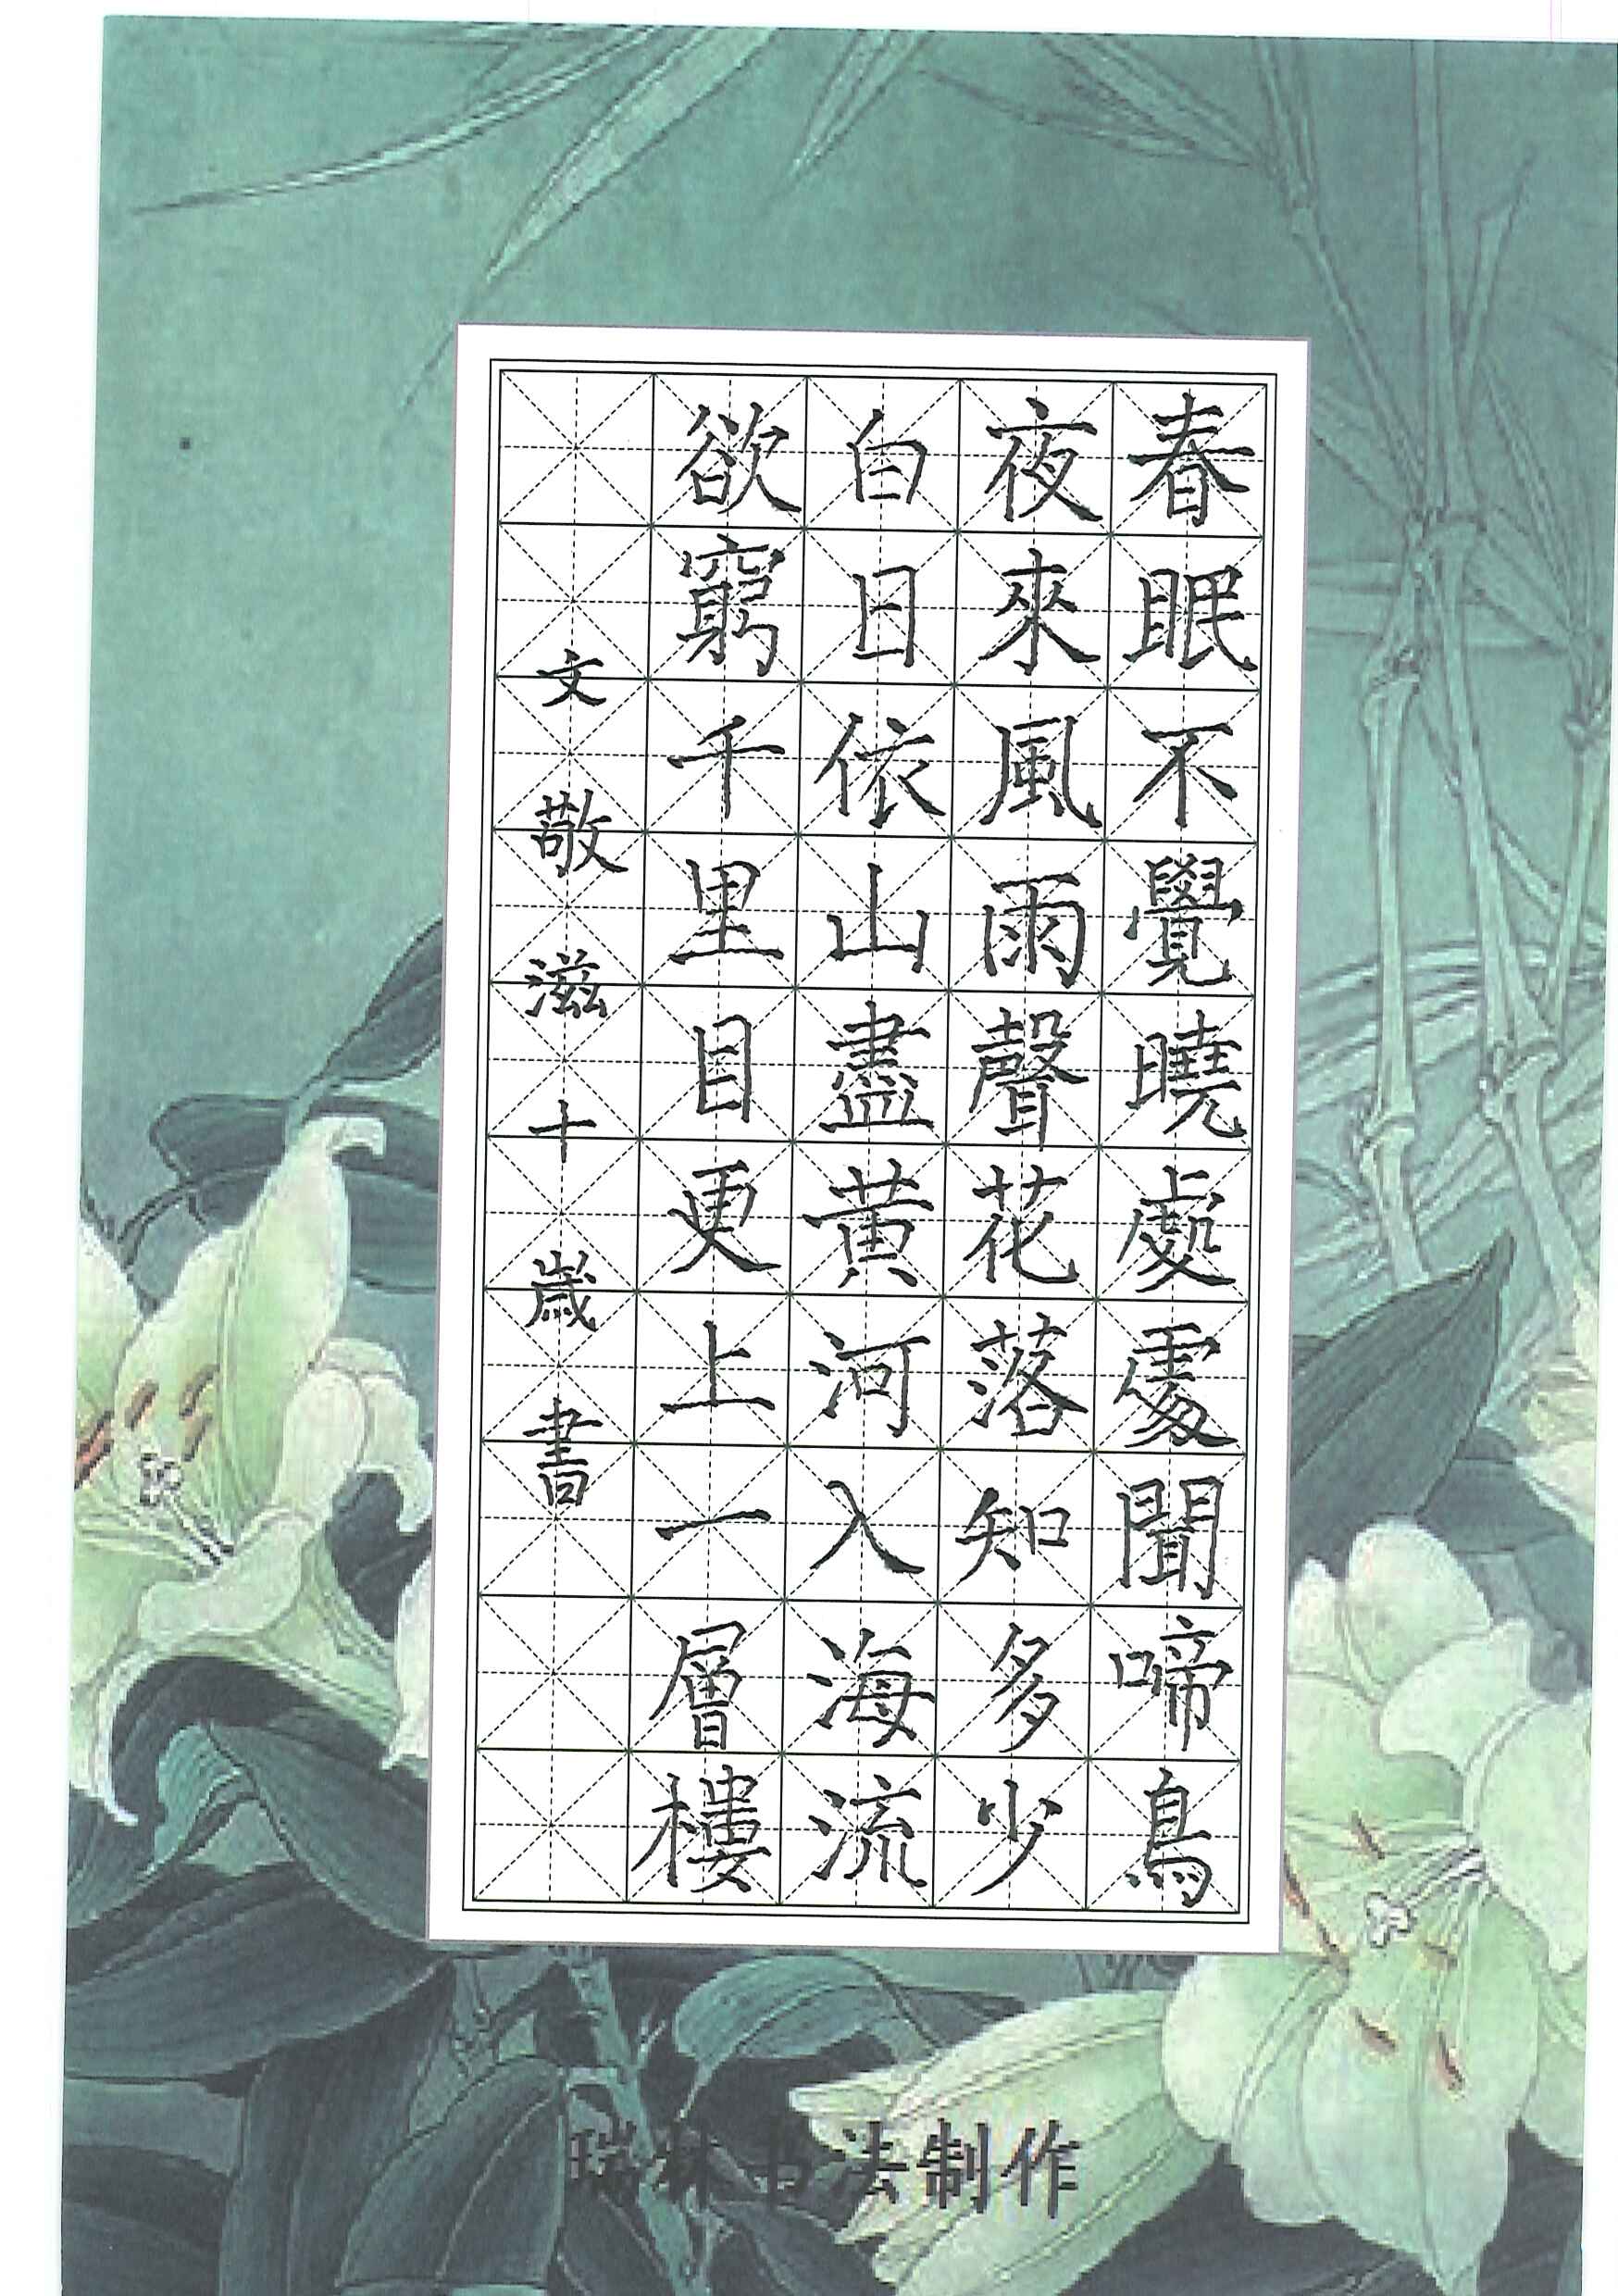 春眠不覺曉處處聞啼鳥
夜來風雨聲花落知多少
白日依山盡黃河入海流
欲窮千里目更上一層樓
文敬滋十歲書
瑞林书法制作